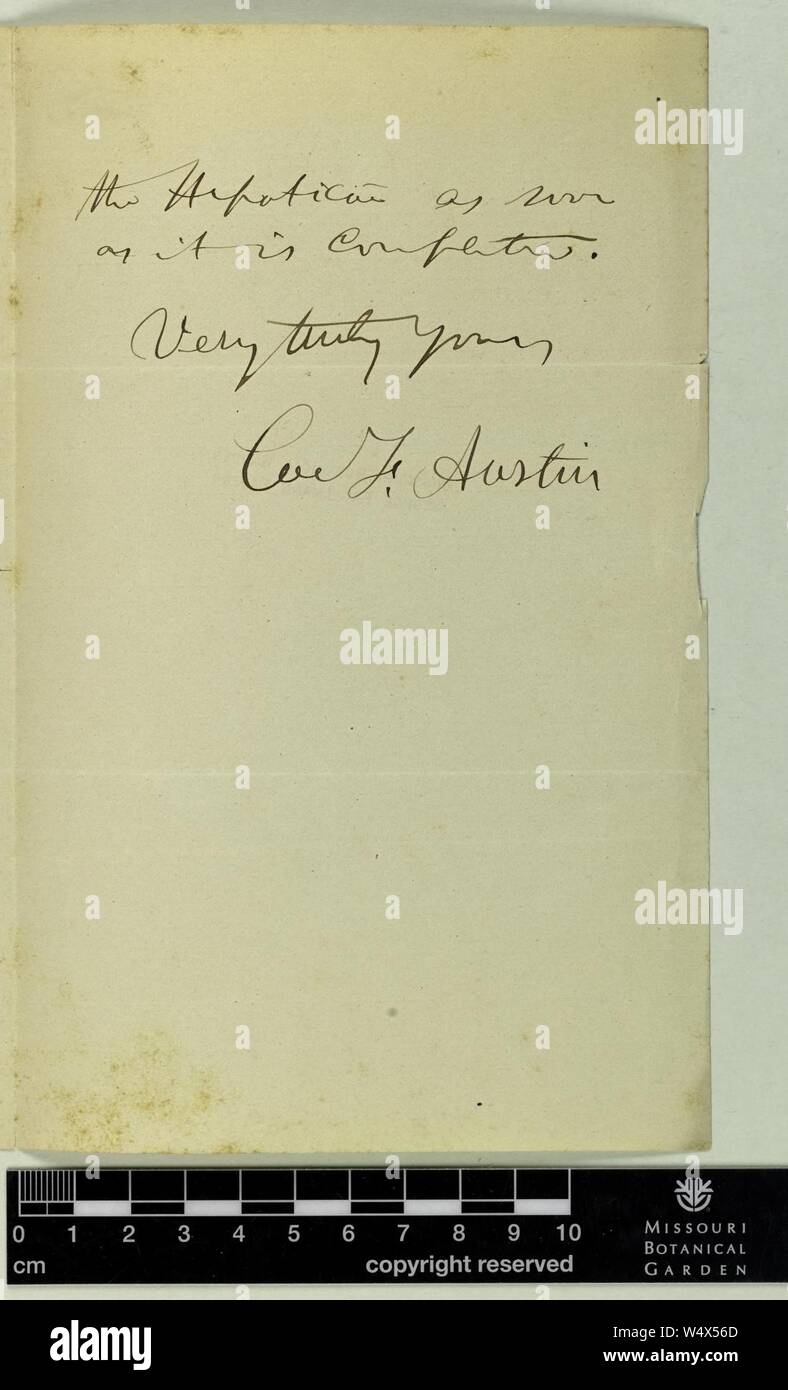 the Hepaticae as soon
as it is Completed.
Very truly Yours
Coe F. Austin
alamy
alamy
alamy
alamy
0 1 2 3 4 5 6 7 8 9 10
cm
copyright reserved
MISSOURI
BOTANICAL
GARDEN
alamy
Image ID: W4X56D
www.alamy.com